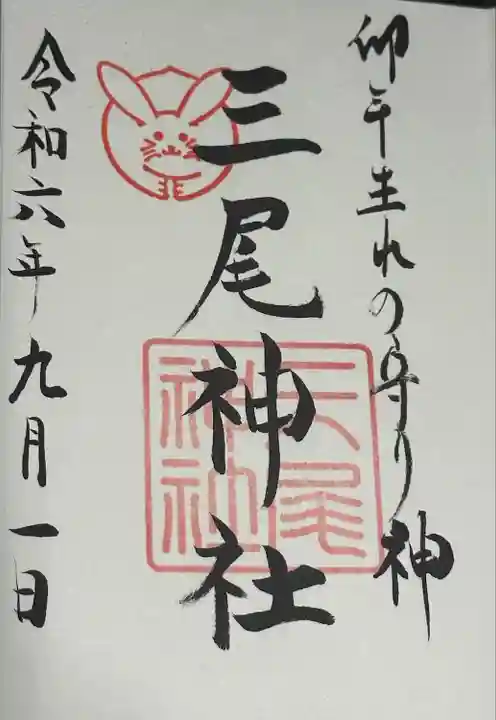 卯年生れの守り神
三尾神社
三尾神社
令和六年九月一日